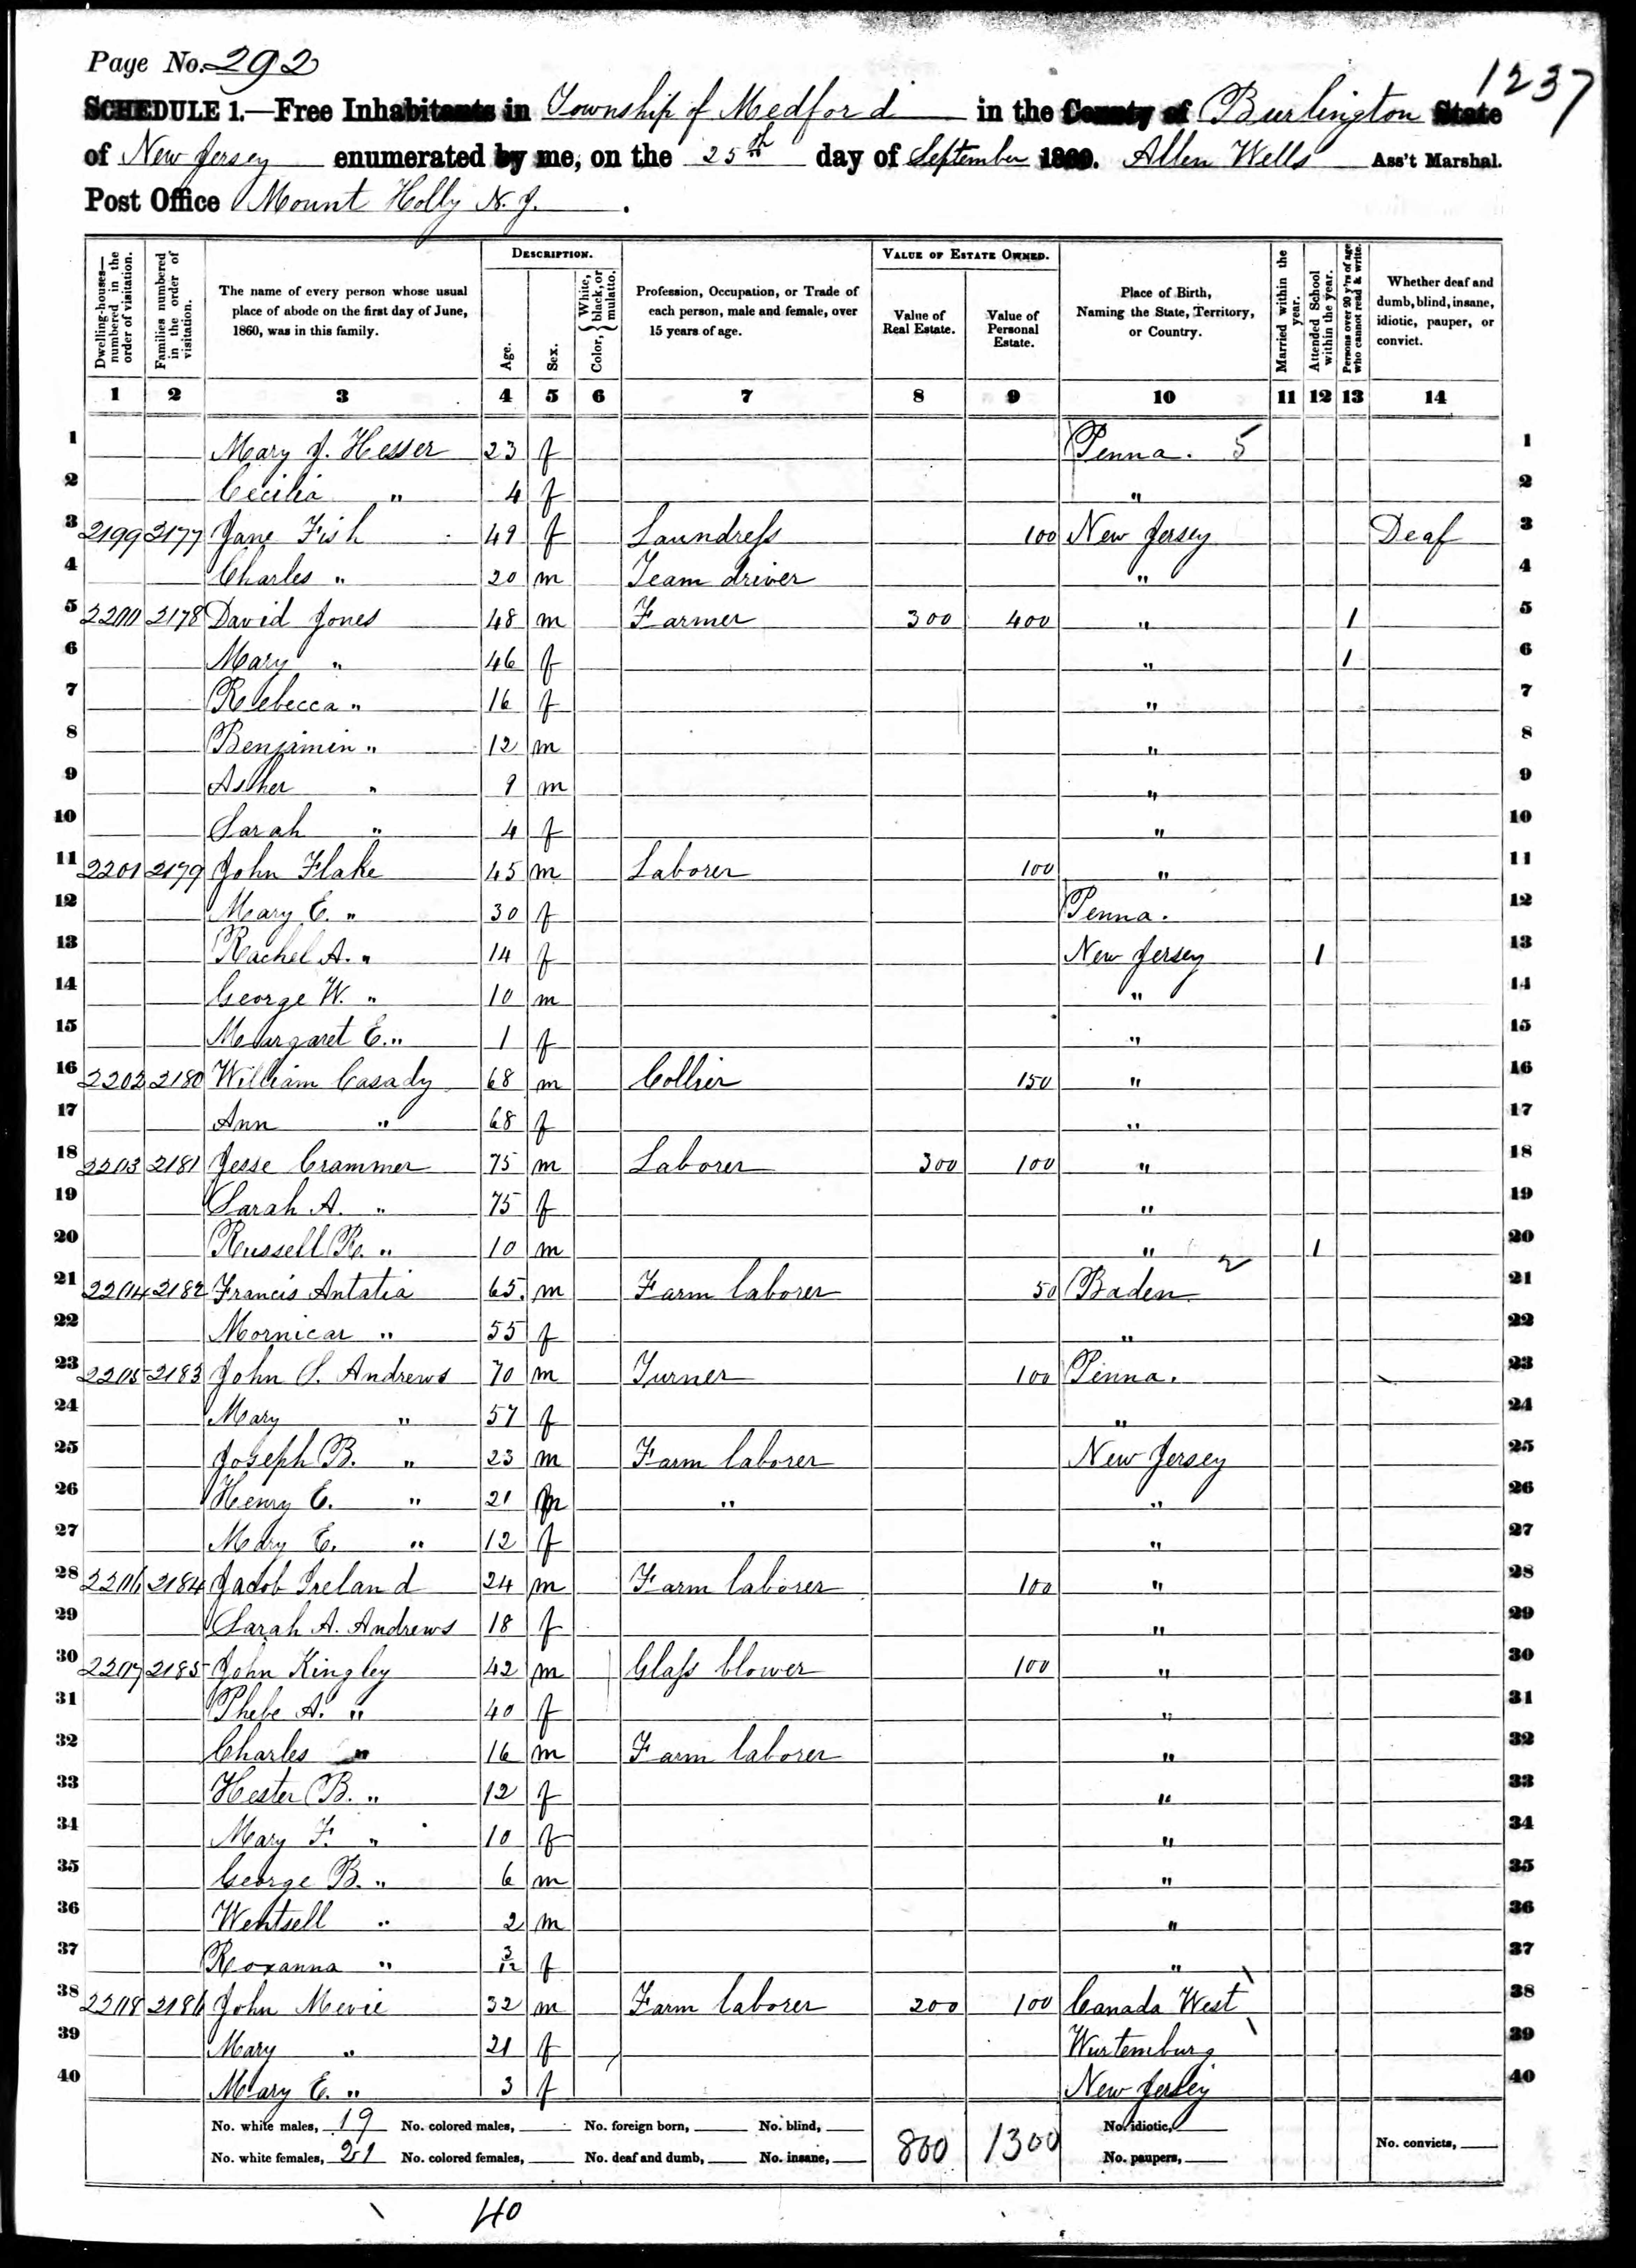 Page No. 292
1237
SCHEDULE 1.—Free Inhabitants in Township of Medford in the County of Burlington State
of New Jersey enumerated by me, on the 25th day of September 1860. Allen Wells Ass't Marshal.
Post Office Mount Holly N. J.
Dwelling-houses—numbered in the order of visitation. Families numbered in the order of visitation. The name of every person whose usual place of abode on the first day of June, 1860, was in this family. DESCRIPTION. Age. Sex. Color, White, black, or mulatto. Profession, Occupation, or Trade of each person, male and female, over 15 years of age. VALUE OF ESTATE OWNED. Value of Real Estate. Value of Personal Estate. Place of Birth, Naming the State, Territory, or Country. Married within the year. Attended School within the year. Persons over 20 y'rs of age who cannot read & write. Whether deaf and dumb, blind, insane, idiotic, pauper, or convict.
1 2 3 4 5 6 7 8 9 10 11 12 13 14
1 Mary J. Hesser 23 f Penna. 5 1
2 Cecilia " 4 f " 2
3 2199 2177 Jane Fish 49 f Laundress 100 New Jersey Deaf 3
4 Charles " 20 m Team driver " 4
5 2200 2178 David Jones 48 m Farmer 300 400 " 1 5
6 Mary " 46 f " 1 6
7 Rebecca " 16 f " 7
8 Benjamin " 12 m " 8
9 Asher " 9 m " 9
10 Sarah " 4 f " 10
11 2201 2179 John Flake 45 m Laborer 100 " 11
12 Mary E. " 30 f Penna. 12
13 Rachel A. " 14 f New Jersey 1 13
14 George W. " 10 m " 14
15 Margaret E. " 1 f " 15
16 2202 2180 William Casady 68 m Collier 150 " 16
17 Ann " 68 f " 17
18 2203 2181 Jesse Crammer 75 m Laborer 300 100 " 18
19 Sarah A. " 75 f " 19
20 Russell R. " 10 m " 1 20
21 2204 2182 Francis Antatia 65. m Farm laborer 50 Baden 2 21
22 Mornicar " 55 f " 22
23 2205 2183 John S. Andrews 70 m Turner 100 Penna. 23
24 Mary " 57 f " 24
25 Joseph B. " 23 m Farm laborer New Jersey 25
26 Henry E. " 21 m " " 26
27 Mary E. " 12 f " 27
28 2206 2184 Jacob Ireland 24 m Farm laborer 100 " 28
29 Sarah A. Andrews 18 f " 29
30 2207 2185 John Kingley 42 m Glass blower 100 " 30
31 Phebe A. " 40 f " 31
32 Charles " 16 m Farm laborer " 32
33 Hester B. " 12 f " 33
34 Mary F. " 10 f " 34
35 George B. " 6 m " 35
36 Wentsell " 2 m " 36
37 Roxanna " 3/12 f " 37
38 2208 2186 John Mevie 32 m Farm laborer 200 100 Canada West 38
39 Mary " 21 f Wurtemburg 39
40 Mary E. " 3 f New Jersey 40
No. white males, 19 No. colored males, No. foreign born, No. blind, 800 1300 No. idiotic,
No. white females, 21 No. colored females, No. deaf and dumb, No. insane, No. paupers, No. convicts,
40